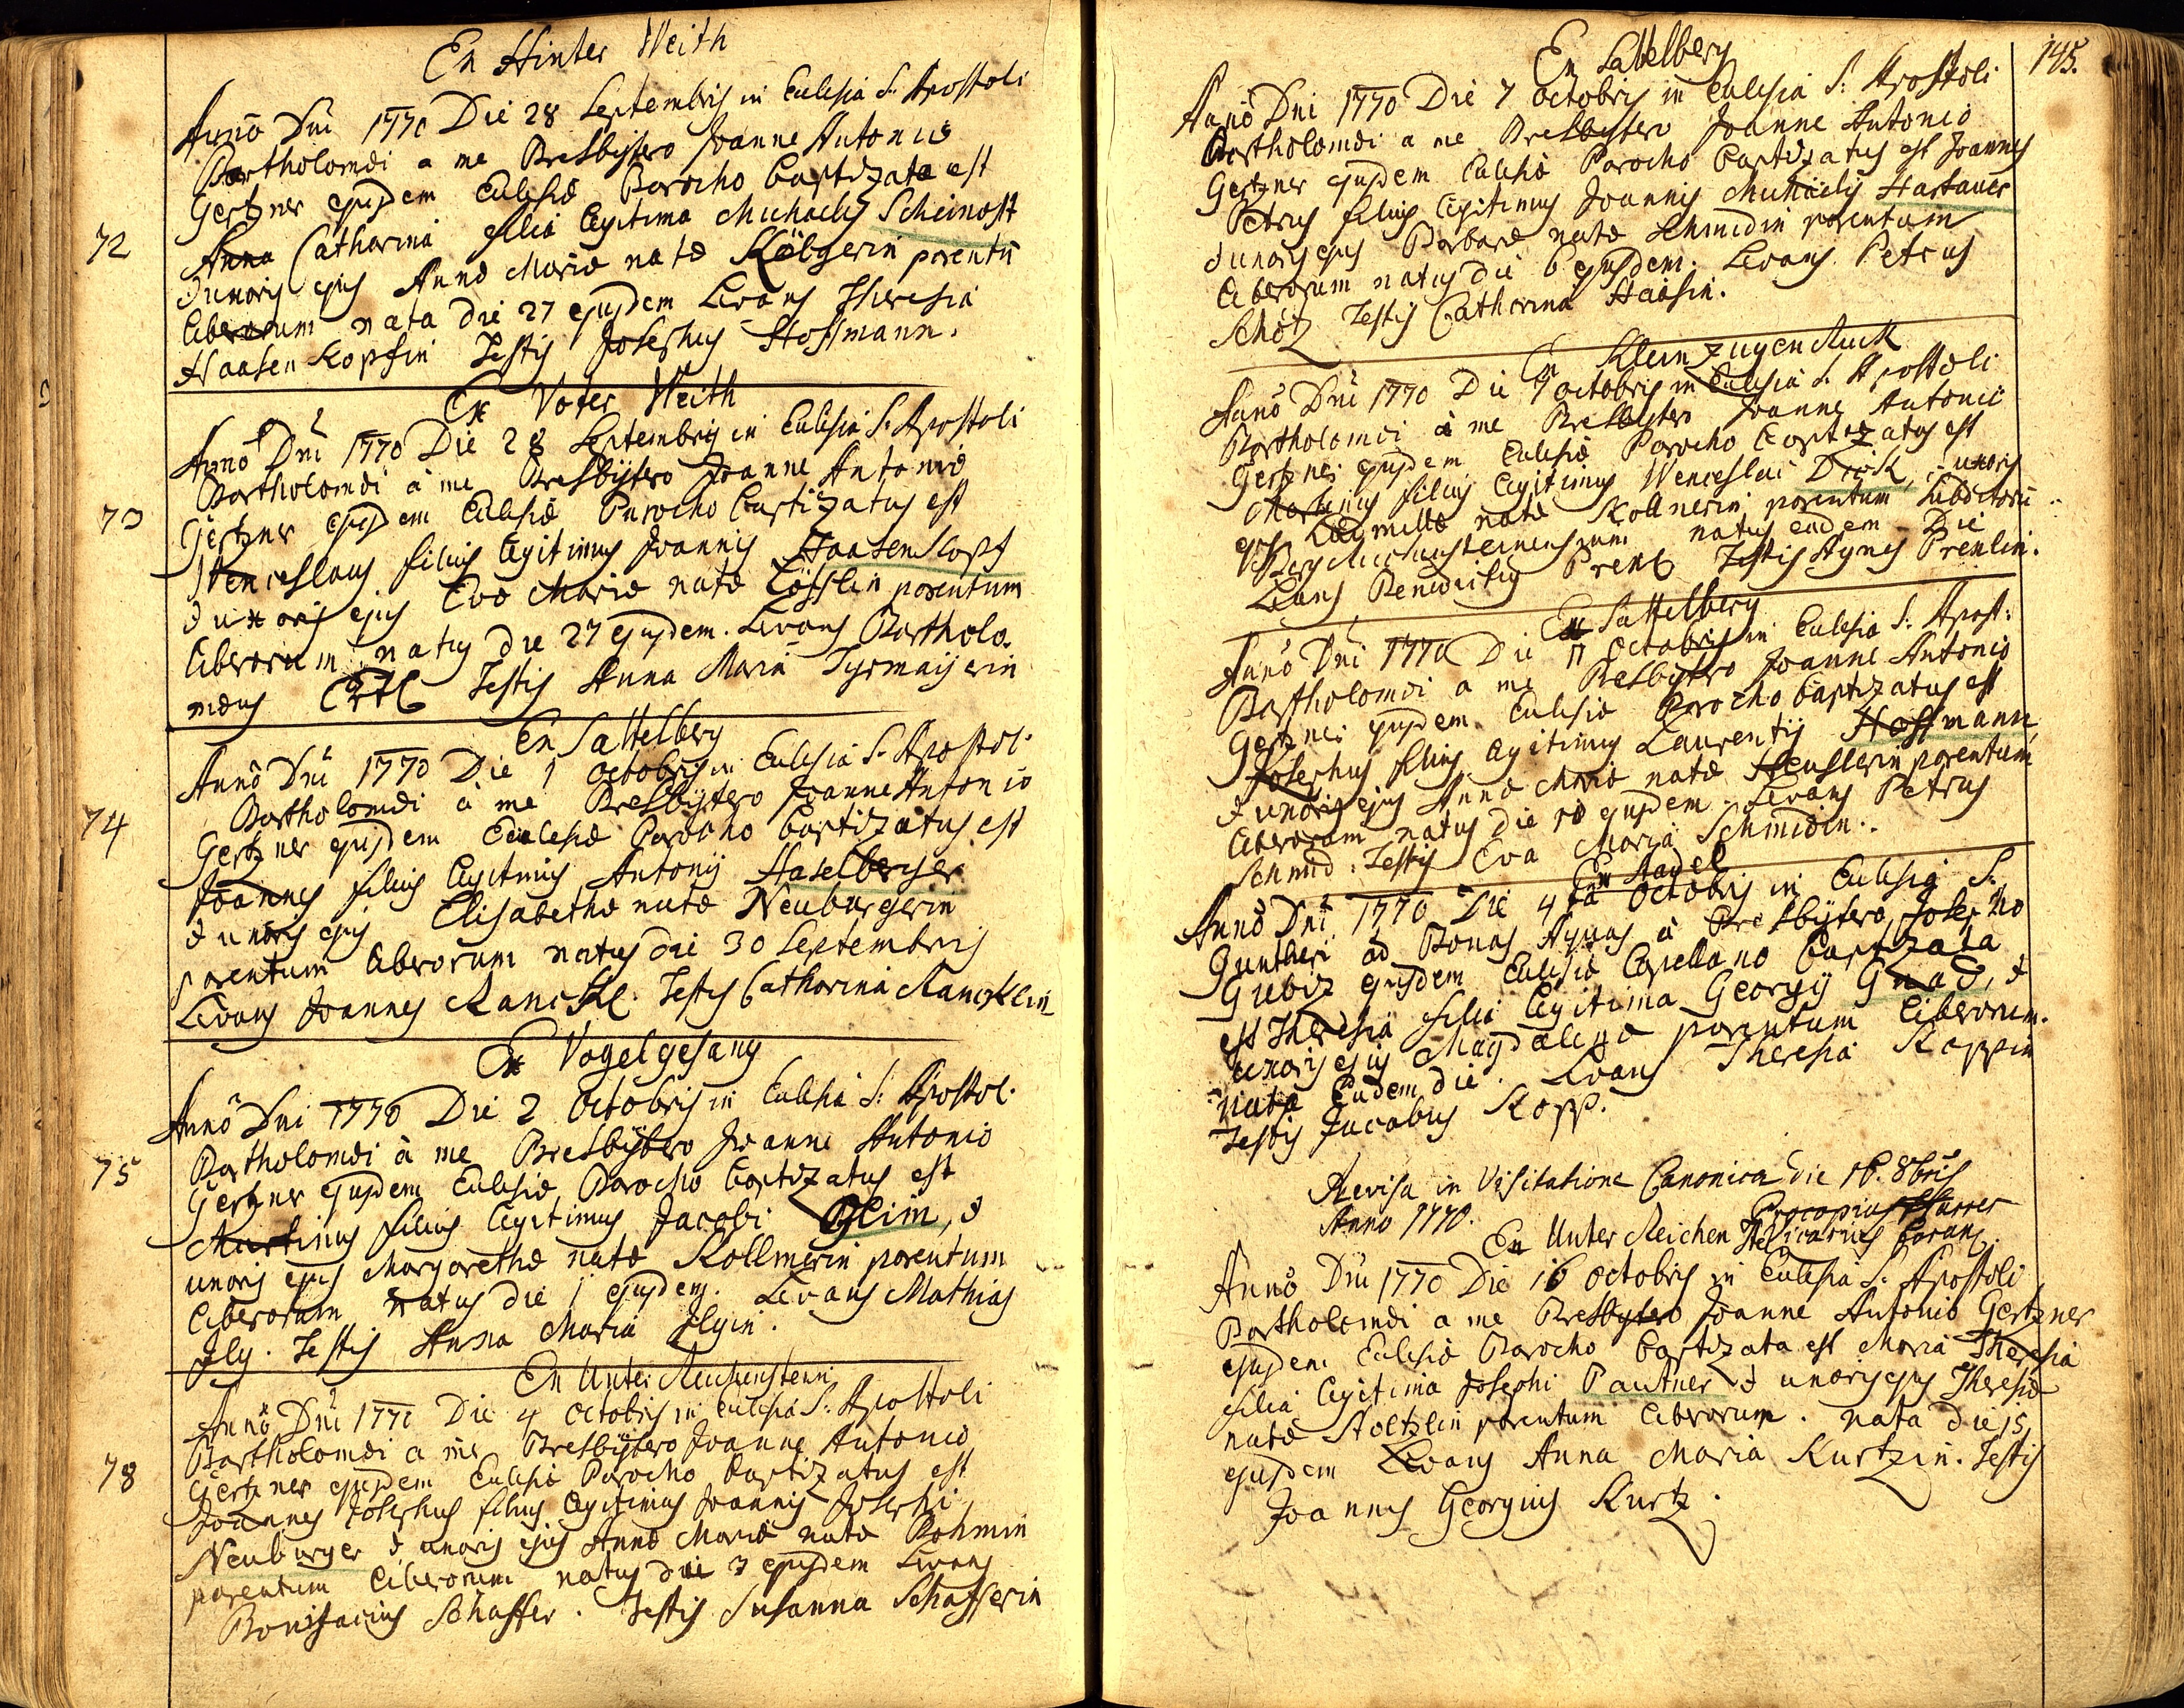 Ex Hinter Weith
Anno Dni 1770 Die 28 Septembris in Eclesia S. Apostoli
Bartholomæi a me Presbÿtero Joanne Antonio
Gertzner ejusdem Eclesiæ Parocho baptizata est
72
Anna Catharina filia legitima Michaelis Scheinost
& uxoris ejus Annæ Mariæ natæ Kölgerin parentū
liberorum nata die 27 ejusdem Levans Theresia
Haasen Kopfin Testis Josephus Hoffmann.
Ex Voter Weith
Anno Dni 1770 Die 28 Septembris in Eclesia S. Apostoli
Bartholomæi à me Presbÿtero Joanne Antonio
73
Gertzner ejusdem Eclesiæ Parocho baptizatus est
Wenceslaus filius legitimus Joannis Haasen Kopf
& uxoris ejus Evæ Mariæ natæ Löfflin parentum
liberorum natus die 27 ejusdem. Levans Bartholo-
mæus Ertl Testis Anna Maria Tyrmaijerin
Ex Sattelberg
Anno Dni 1770 Die 1 Octobris in Eclesia S. Apostoli
Bartholomæi à me Presbÿtero Joanne Antonio
74
Gertzner ejusdem Eclesiæ Parocho baptizatus est
Joannes filius legitimus Antonij Haselberger
& uxoris ejus Elisabethæ natæ Neuburgerin
parentum liberorum natus die 30 Septembris
Levans Joannes Ranckl. Testis Catharina Ranckl̄in
Ex Vogelgesang
Anno Dni 1770 Die 2 Octobris in Eclesia S: Apostol.
Bartholomæi à me Presbÿtero Joanne Antonio
75
Gertzner ejusdem Eclesiæ Parocho baptizatus est
Martinus filius legitimus Jacobi Gleim, &
uxoris ejus Margarethæ natæ Kollmerin parentum
liberorum natus die 1 ejusdem. Levans Mathias
Jlg. Testis Anna Maria Jlgin.
Ex Unter Reichenstein
Anno Dni 1770 Die 4 Octobris in Eclesia S: Apostoli
Bartholomæi a me Presbÿtero Joanne Antonio
78
Gertzner ejusdem Eclesiæ Parocho baptizatus est
Joannes Josephus filius legitimus Joannis Josephi
Neuburger & uxoris ejus Annæ Mariæ natæ Böhmin
parentum liberorum natus die 3 ejusdem Levans
Bonifacius Schaffer. Testis Susanna Schafferin
145.
Ex Sattelberg
Anno Dni 1770 Die 7 Octobris in Eclesia S: Apostoli
Bartholomæi a me Presbytero Joanne Antonio
Gertzner ejusdem Eclesiæ Parocho baptizatus est Joannes
Petrus filius legitimus Joannis Michaelis Hartauer
& uxoris ejus Barbaræ natæ Schmidin parentum
liberorum natus die 6 ejusdem. Levans Petrus
Schötz Testis Catharina Haasin.
Ex Klein zugen Ruck
Anno Dni 1770 Die 7 Octobris in Eclesia S. Apostoli
Bartholomæi à me Presbÿtero Joanne Antonio
Gertzner ejusdem Eclesiæ Parocho baptizatus est
Martinus filius legitimus Wenceslai Dick, & uxoris
ejus Ludmillæ natæ Kollnerin parentum Subditorū
Berg natus eadem Die
Levans Benedictus Prenl Testis Agnes Prenlin.
Ex Sattelberg
Anno Dni 1770 Die 11 Octobris in Eclesia S: Apost:
Bartholomæi a me Presbÿtero Joanne Antonio
Gertzner ejusdem Eclesiæ Parocho baptizatus est
Josephus filius legitimus Laurentij Hoffmann
& uxoris ejus Annæ Mariæ natæ Heuslerin parentum
liberorum natus die 10 ejusdem. Levans Petrus
Schmid. Testis Eva Maria Schmidin.
Ex Stadel
Anno Dni 1770 Die 4ta Octobris in Eclesia S.
Guntheri ad Bonas Aquas à Presbÿtero Josepho
Gubiz ejusdem Eclesiæ Capellano baptizata
est Theresia filia legitima Georgij Gnad, &
uxoris ejus Magdalenæ parentum liberorum.
nata Eadem die. Levans Theresia Koppin
Testis Jacobus Kopp.
Revisa in Visitatione Canonica die 16. 8bris
Anno 1770. Procopius Pfarrer
Vicarius foran:
Ex Unter Reichen St
Anno Dni 1770 Die 16 Octobris in Eclesia S: Apostoli
Bartholomæi a me Presbytero Joanne Antonio Gertzner
ejusdem Eclesiæ Parocho baptizata est Maria Theresia
filia legitima Josephi Pautner & uxoris ejus Theresiæ
natæ Stoltzlin parentum liberorum. nata die 15
ejusdem Levans Anna Maria Kurtzin. Testis
Joannes Georgius Kurtz.